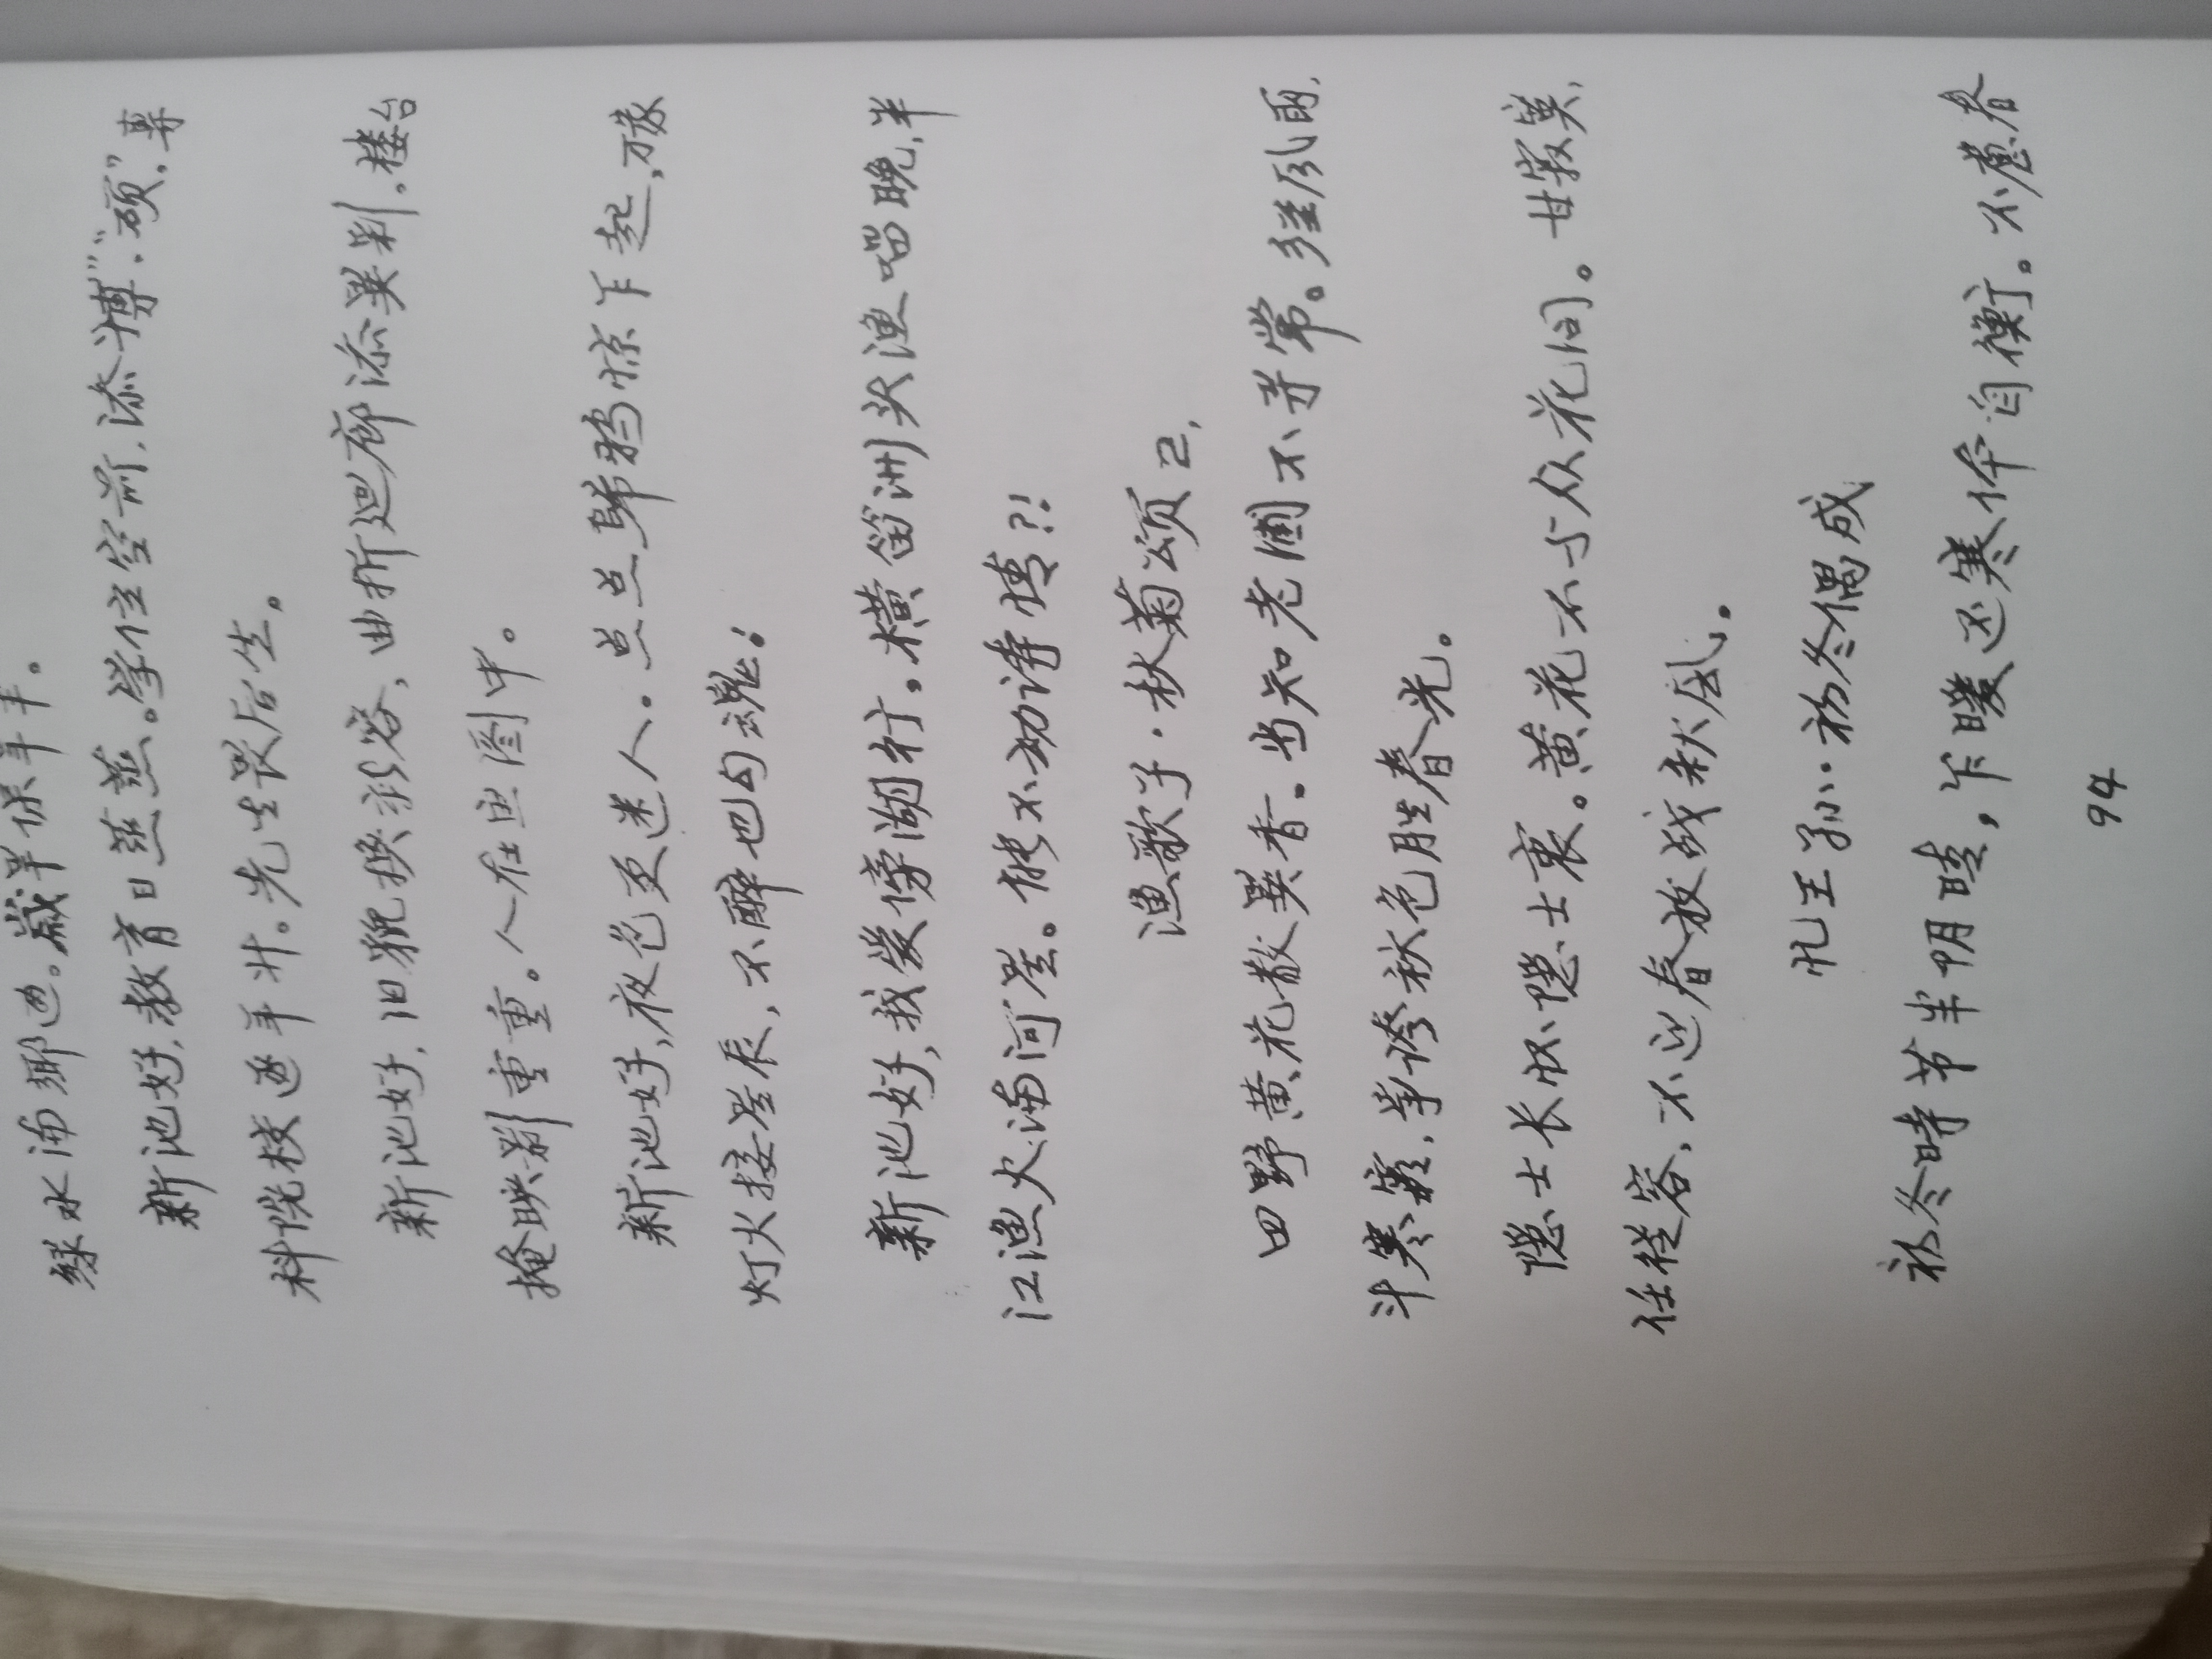 绿水浦乡通。岁岁保丰年。
新池好,教育日蒸蒸。学位空前添“博”“硕”,专
科院校遂年升。先生畏后生。
新池好,旧貌换新容,曲折迴廊添异彩,楼台
掩映影重重。人在画图中。
新池好,夜色更迷人。点点归鸦惊乍起,
灯火接星辰,不醉也勾魂!
新池好,我爱傍湖行。横笛洲头渔唱晚,半
江渔火满河星。能不动诗情?!
渔歌子·秋菊颂 2,
田野黄花散异香。当知老圃不寻常。经风雨,
斗寒霜,争誇秋色胜春光。
隐士长怀隐士衷。黄花不与众花同。甘寂寞,
任从容,不迎春放战秋风。
忆王孙·初冬偶成
初冬时节半阴晴,乍暖还寒体自衡。不羡春
94